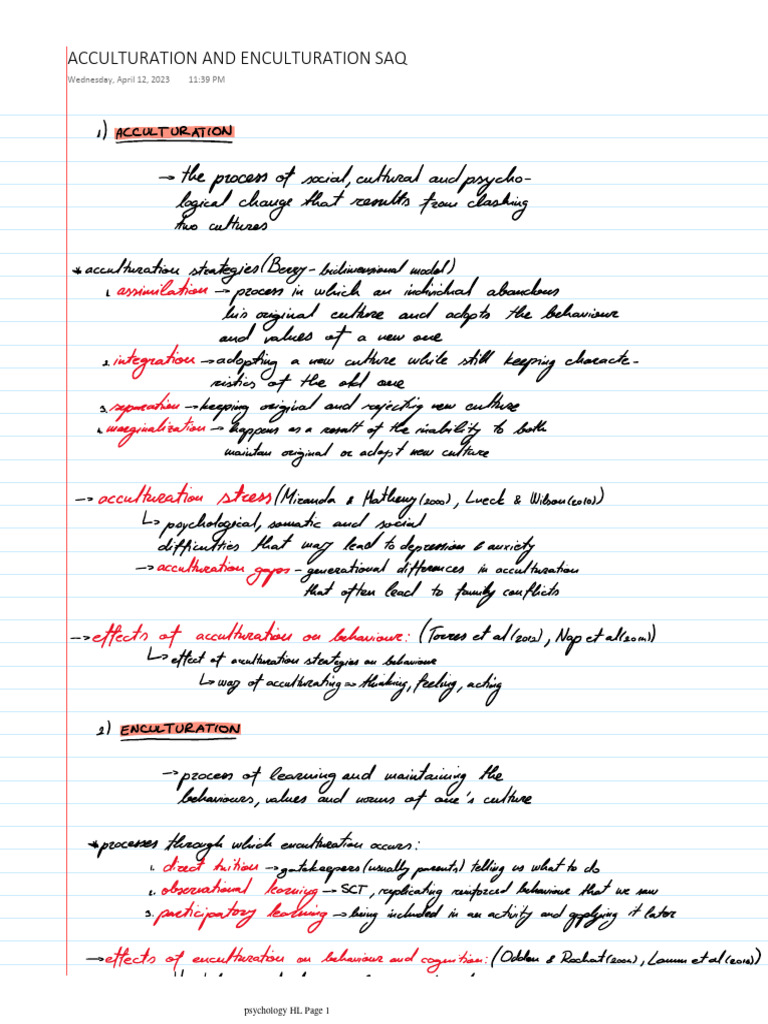 ACCULTURATION AND ENCULTURATION SAQ
Wednesday, April 12, 2023 11:39 PM
1) ACCULTURATION
→ the process of social, cultural and psycho-
logical change that results from clashing
two cultures
* acculturation strategies (Berry - bidimensional model)
1. assimilation → process in which an individual abandons
his original culture and adopts the behaviour
and values of a new one
2. integration → adopting a new culture while still keeping characte-
ristics of the old one
3. separation → keeping original and rejecting new culture
4. marginalization → happens as a result of the inability to both
maintain original or adopt new culture
→ acculturation stress (Miranda & Matheny (2000), Lueck & Wilson (2010))
↳ psychological, somatic and social
difficulties that may lead to depression & anxiety
→ acculturation gaps - generational differences in acculturation
that often lead to family conflicts
→ effects of acculturation on behaviour: (Torres et al (2012), Nap et al
↳ effect of acculturation strategies on behaviour
↳ way of acculturating → thinking, feeling, acting
2) ENCULTURATION
→ process of learning and maintaining the
behaviours, values and norms of one's culture
* processes through which enculturation occurs:
1. direct tuition → gatekeepers (usually parents) telling us what to do
2. observational learning → SCT, replicating reinforced behaviour that we saw
3. participatory learning → being included in an activity and applying it later
→ effects of enculturation on behaviour and cognition: (Odden & Rochat (2004), Lamm et al
psychology HL Page 1